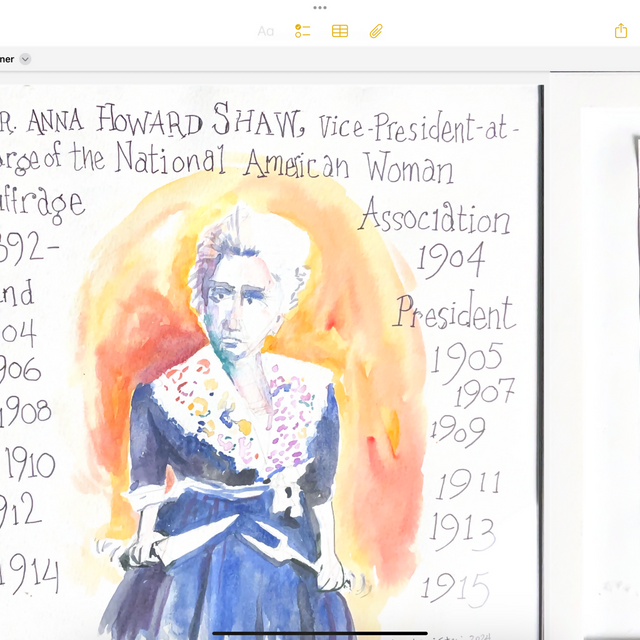 Aa
ner
R. ANNA HOWARD SHAW, Vice-President-at-
arge of the National American Woman
uffrage Association
892- 1904
and President
04 1905
906 1907
1908 1909
1910 1911
912 1913
1914 1915
2024